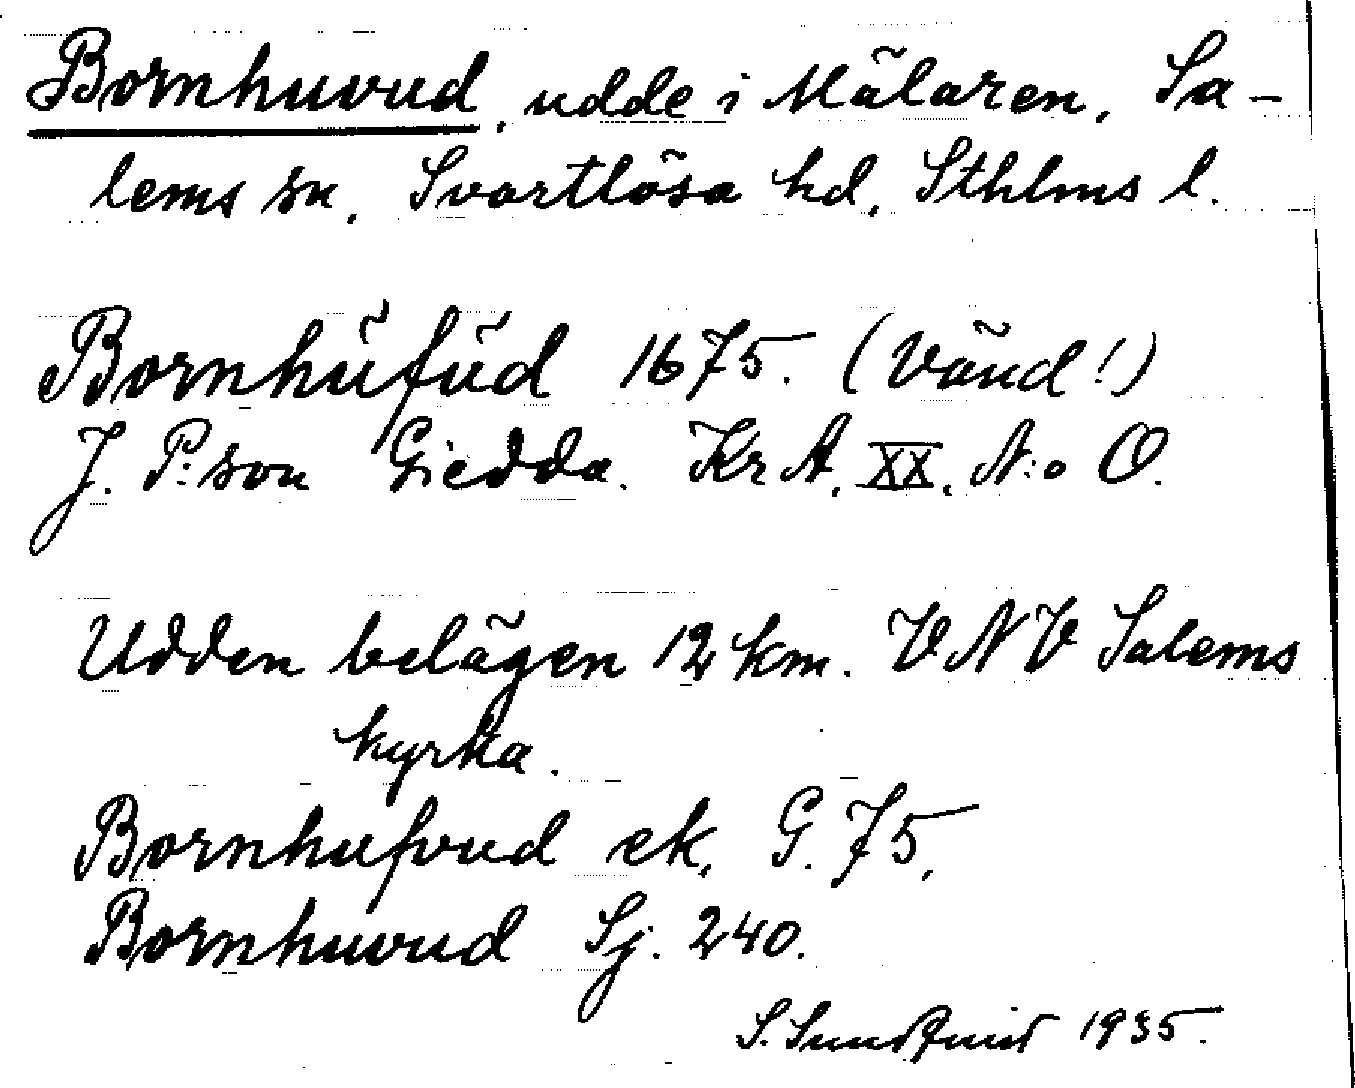 Bornhuvud, udde i Mälaren, Sa-
lems sn, Svartlösa hd, Sthlms l.
Bornhŭfŭd 1675. (Vänd!)
J. P:son Giedda. Kr A, XX, N:o O.
Udden belägen 12 km. VNV Salems
kyrka.
Bornhufvud ek, G. 75,
Bornhuvud Sj. 240.
S. Sundqvist 1935.